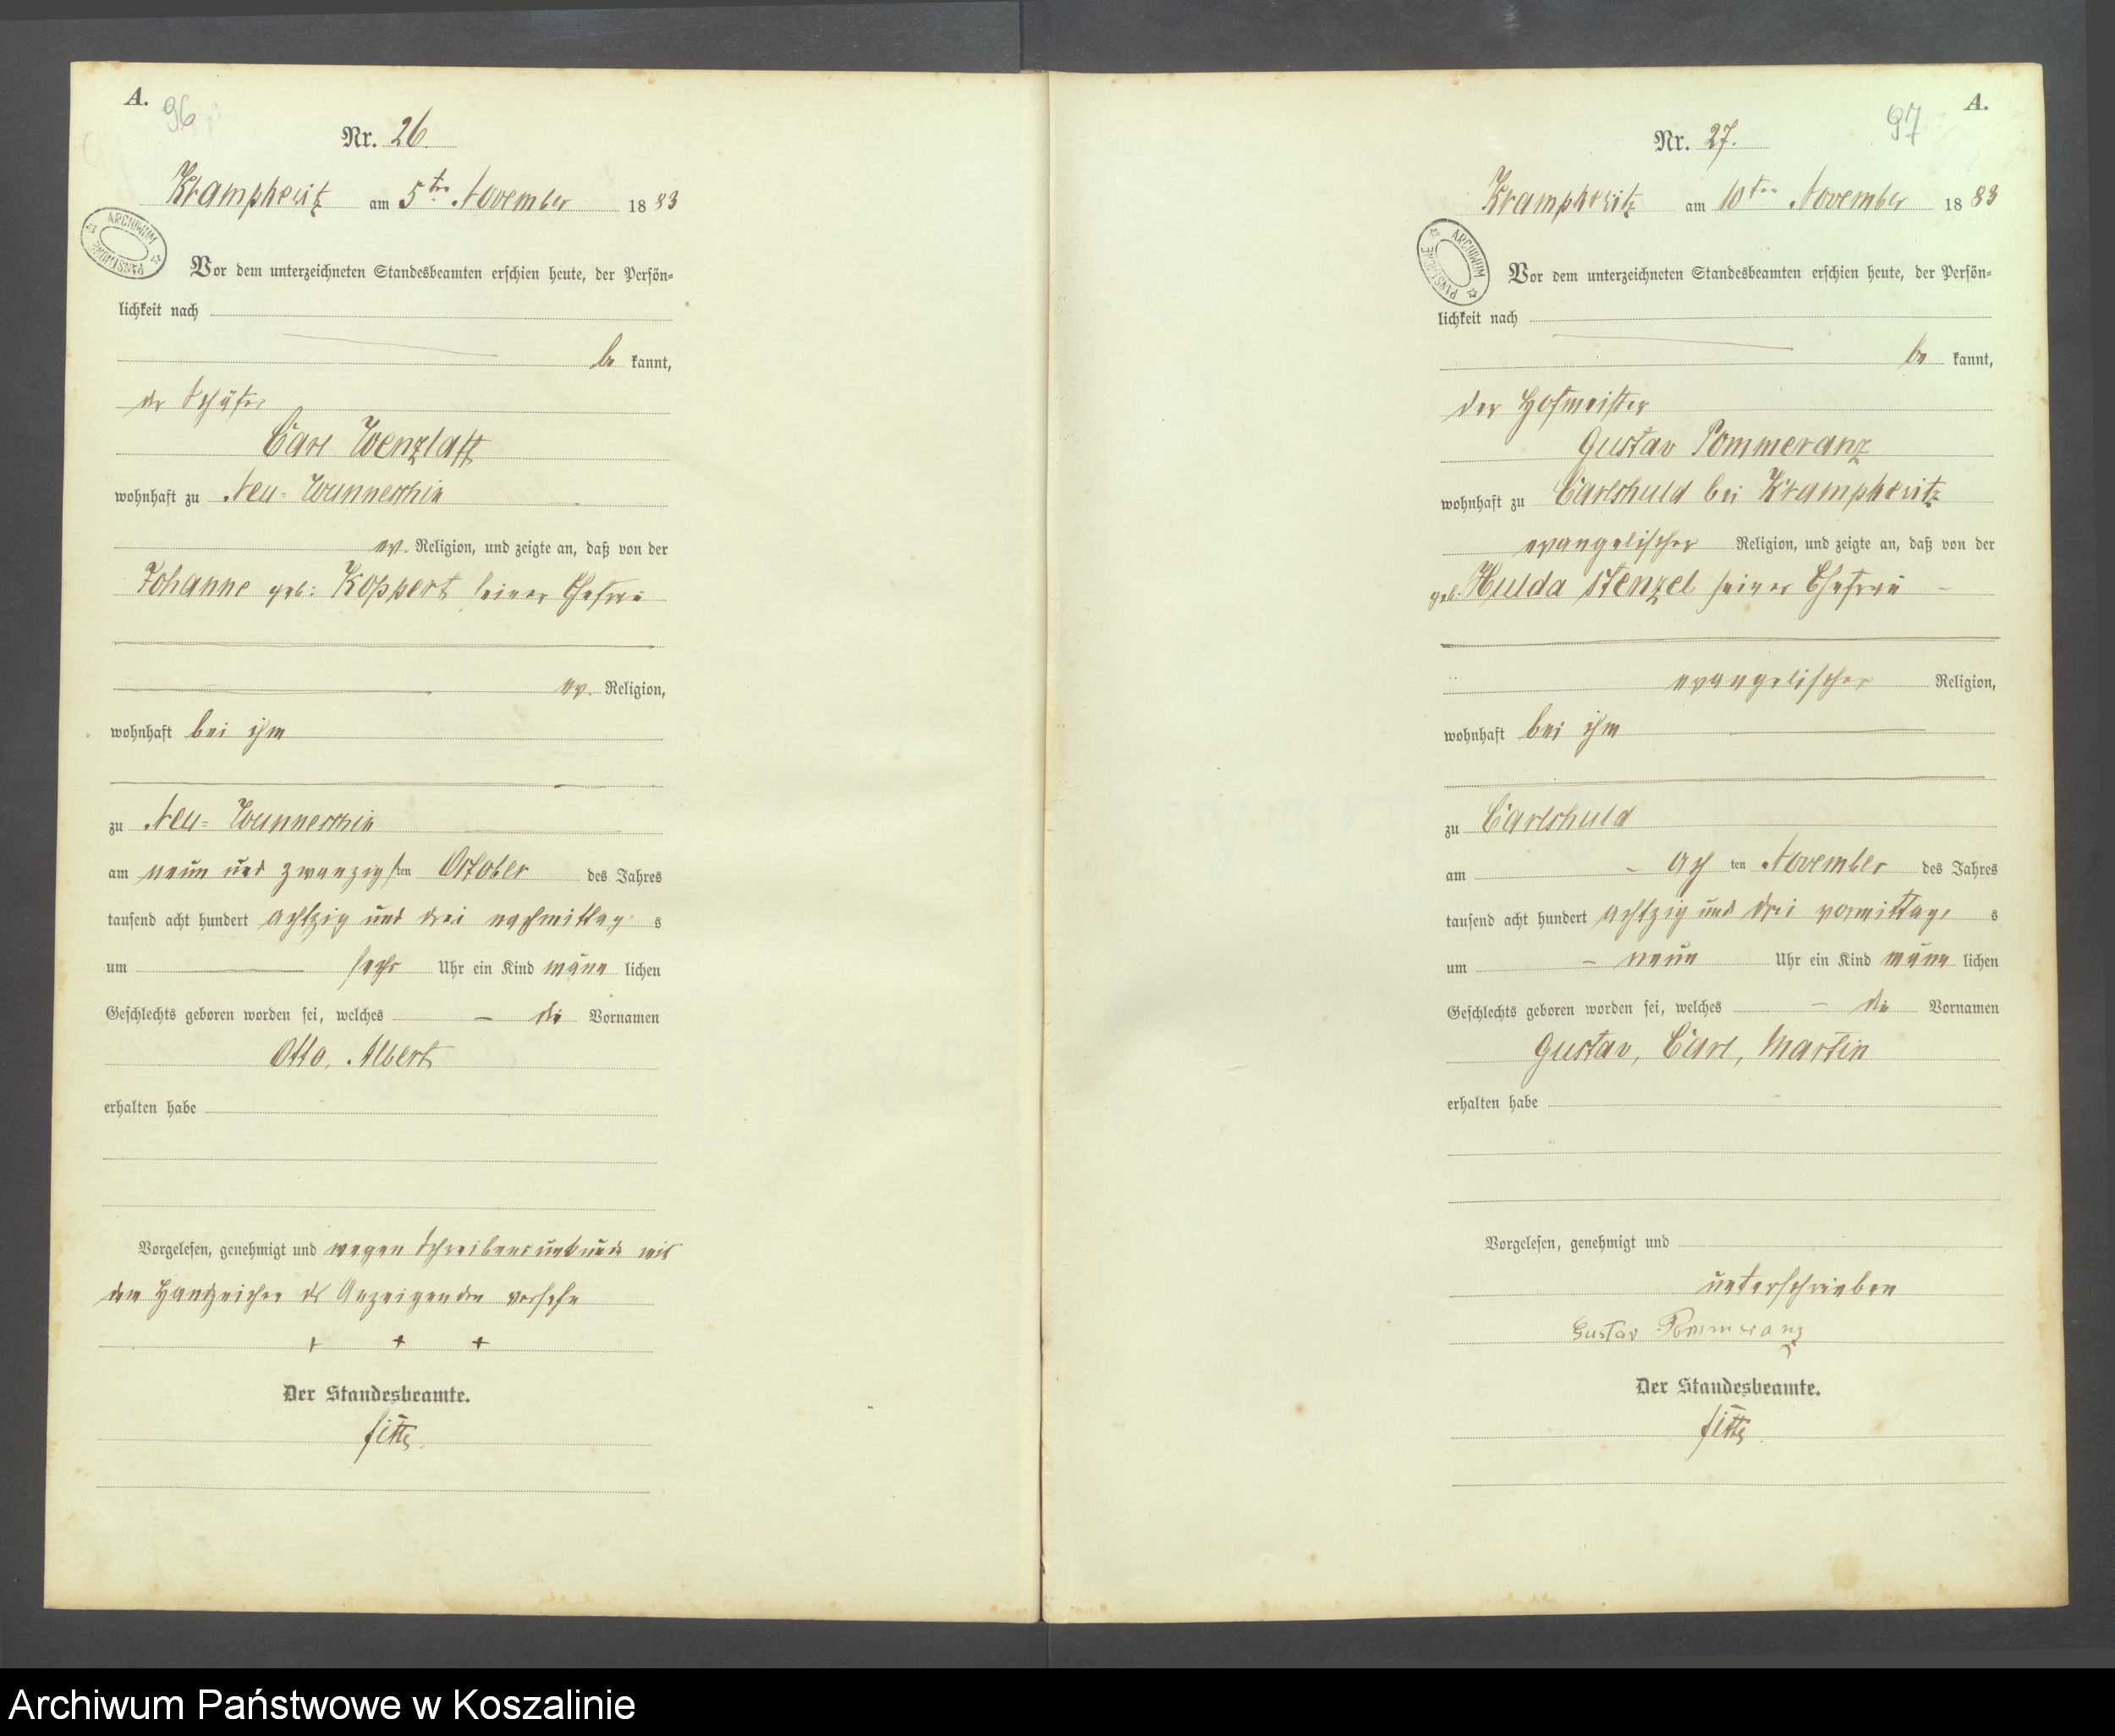 A.
96
Nr. 26.
Krampkewitz am 5ten November 1883
ARCHIWUM PAŃSTWOWE
Vor dem unterzeichneten Standesbeamten erschien heute, der Persön-
lichkeit nach
be kannt,
der Schäfer
Carl Wenzlaff
wohnhaft zu Neu-Wunneschin
ev. Religion, und zeigte an, daß von der
Johanne geb: Koppert seiner Ehefrau
ev. Religion,
wohnhaft bei ihm
zu Neu-Wunneschin
am neun und zwanzigsten October des Jahres
tausend acht hundert achtzig und drei nachmittags
um sechs Uhr ein Kind männlichen
Geschlechts geboren worden sei, welches die Vornamen
Otto, Albert
erhalten habe
Vorgelesen, genehmigt und wegen Schreibensunkunde mit
dem Handzeichen des Anzeigenden versehen
+ + +
Der Standesbeamte.
A.
97
Nr. 27.
Krampkewitz am 10ten November 1883
ARCHIWUM PAŃSTWOWE
Vor dem unterzeichneten Standesbeamten erschien heute, der Persön-
lichkeit nach
be kannt,
der Hofmeister
Gustav Pommeranz
wohnhaft zu Carlshuld bei Krampkewitz
evangelischer Religion, und zeigte an, daß von der
geb. Hulda Stenzel seiner Ehefrau
evangelischer Religion,
wohnhaft bei ihm
zu Carlshuld
am achten November des Jahres
tausend acht hundert achtzig und drei vormittags
um neun Uhr ein Kind männlichen
Geschlechts geboren worden sei, welches die Vornamen
Gustav, Carl, Martin
erhalten habe
Vorgelesen, genehmigt und
unterschrieben
Gustav Pommeranz
Der Standesbeamte.
Archiwum Państwowe w Koszalinie